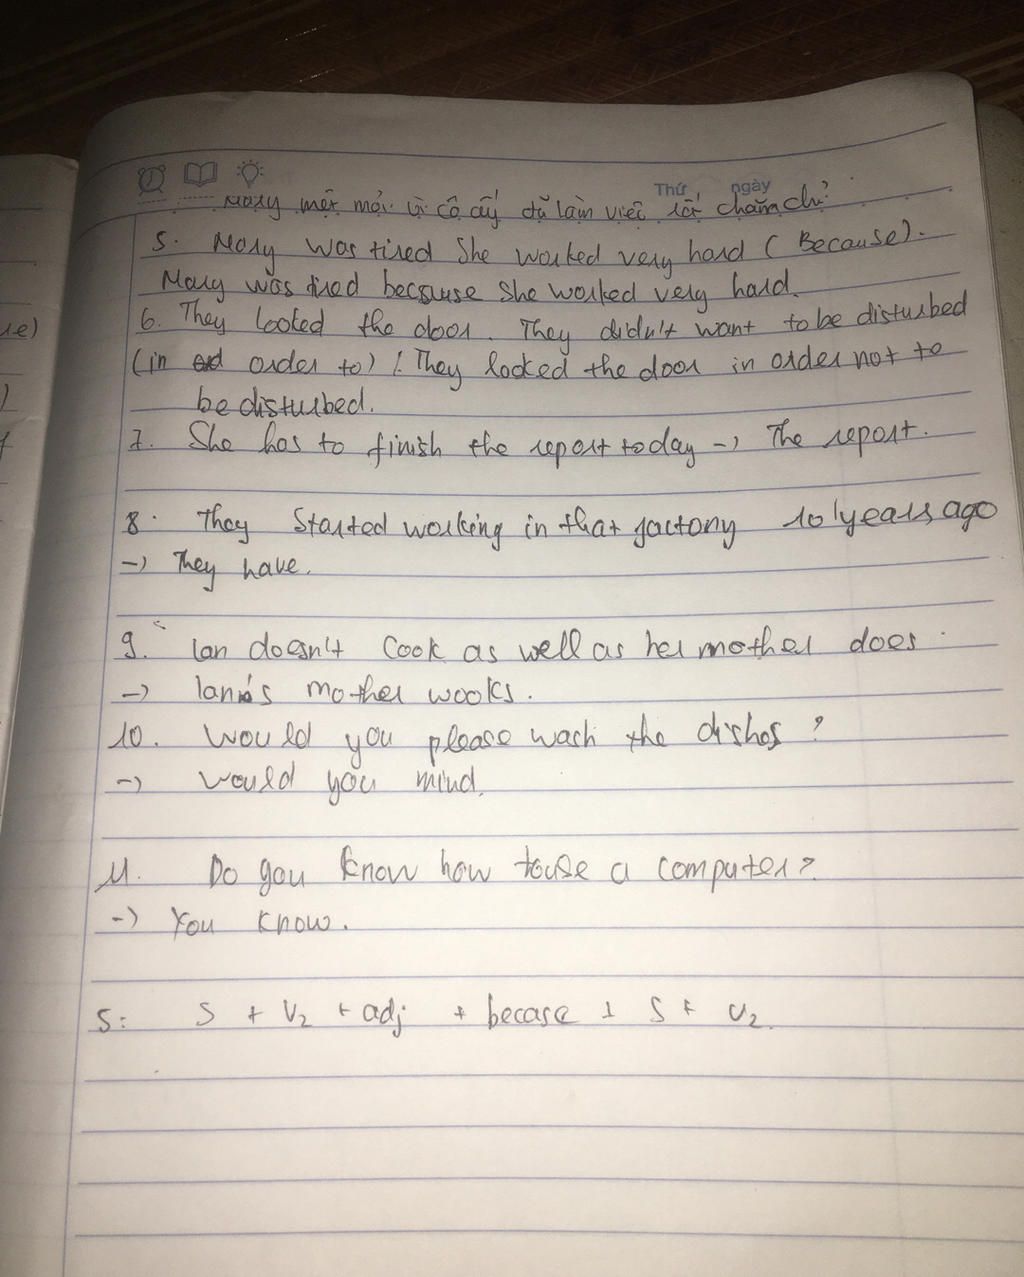 Thứ ngày
Mary mệt mỏi vì cô ấy đã làm việc rất chăm chỉ
5. Mary was tired She worked very hard (Because).
Mary was tired because she worked very hard.
6. They locked the door. They didn't want to be disturbed
(in order to) They locked the door in order not to
be disturbed.
7. She has to finish the report today -> The report.
8. They started working in that factory 10 years ago
-> They have.
9. Ian doesn't cook as well as her mother does
-> Ian's mother wooks.
10. Would you please wash the dishes?
-> Would you mind.
11. Do you know how to use a computer?
-> You know.
5: S + V2 + adj + becase + S + V2.